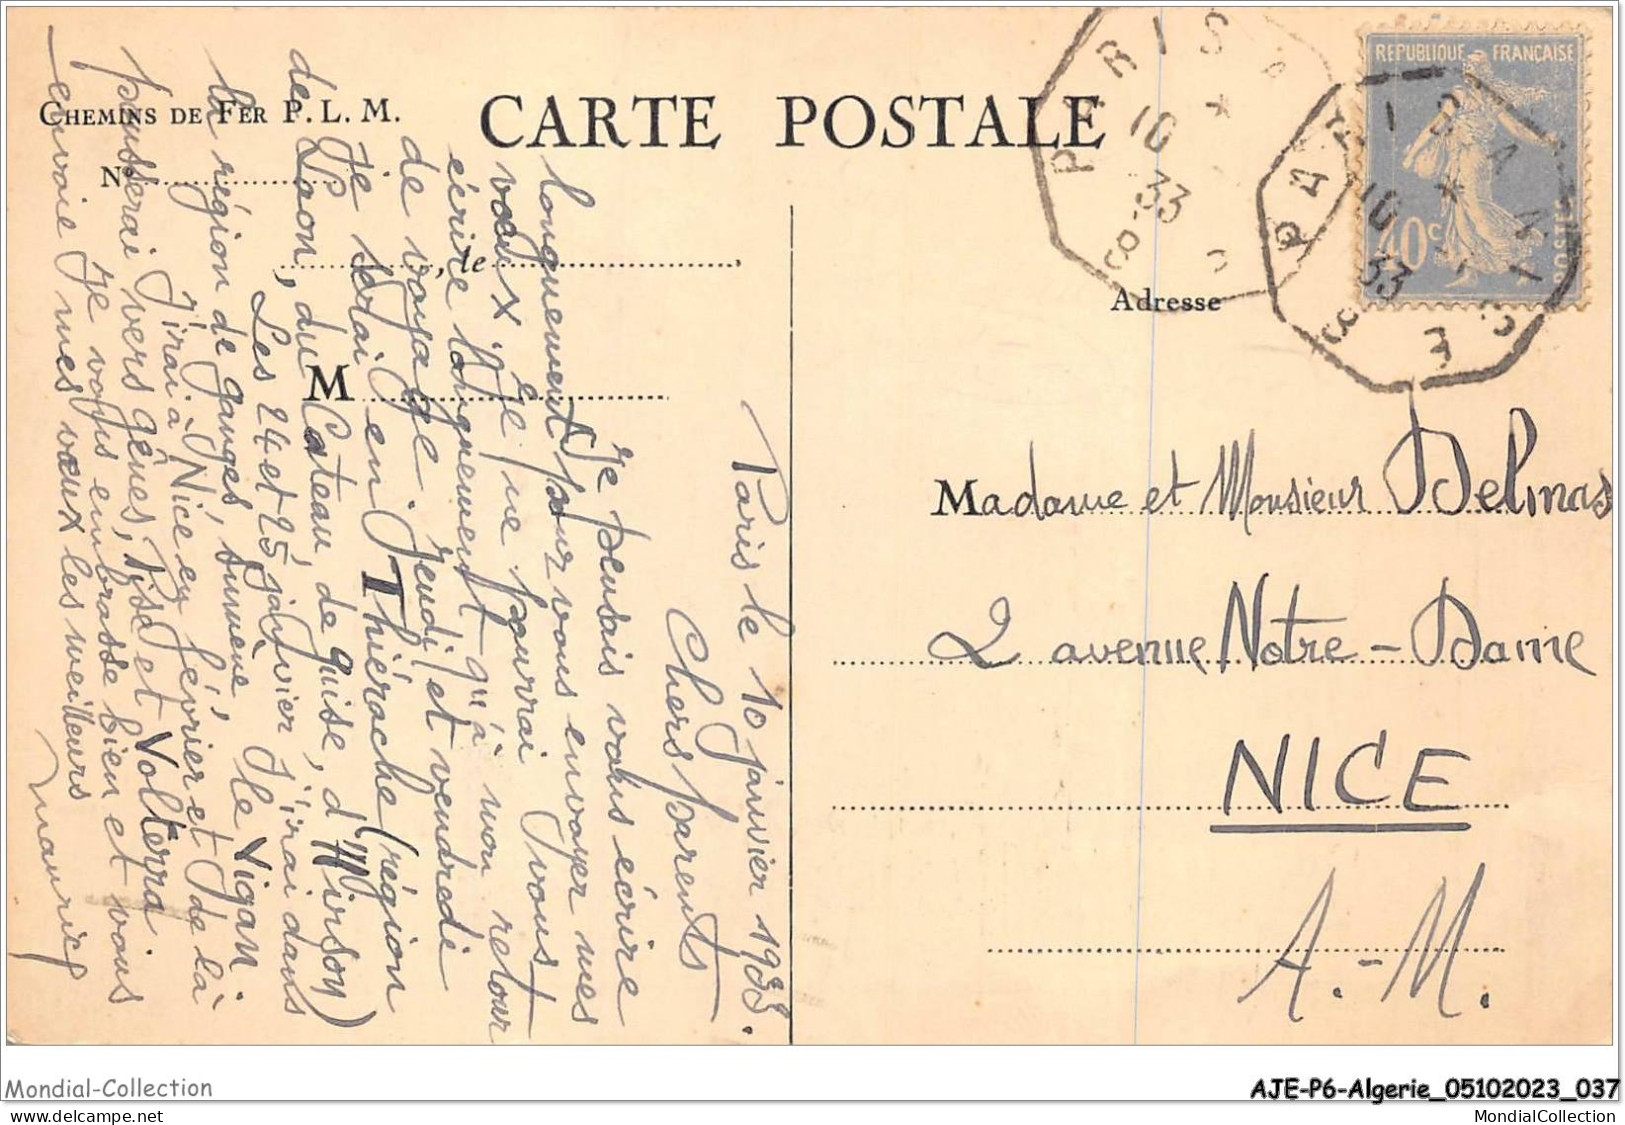 CHEMINS DE FER P. L. M.
CARTE POSTALE
N°
, le
M
Adresse
REPUBLIQUE FRANÇAISE
40c
POSTES
PARIS
10
33
PARIS A
10
33
Paris le 10 janvier 1933.
Chers parents
Je pensais vous écrire
longuement pour vous envoyer mes
vœux. Je ne pourrai vous
écrire longuement qu'à mon retour
de voyage. Jeudi et vendredi
Je serai en Thiérache (région
de Laon, du Cateau, de Guise, d'Hirson)
Les 24 et 25 janvier j'irai dans
la région de Ganges, Sumène, Le Vigan.
J'irai à Nice en février et de là
pousserai vers Gênes, Pise et Volterra
Je vous embrasse bien et vous
envoie mes vœux les meilleurs
Maurice
Madame et Monsieur Delmas
2 avenue Notre-Dame
NICE
A.-M.
Mondial-Collection
AJE-P6-Algerie_05102023_037
delcampe.net
MondialCollection